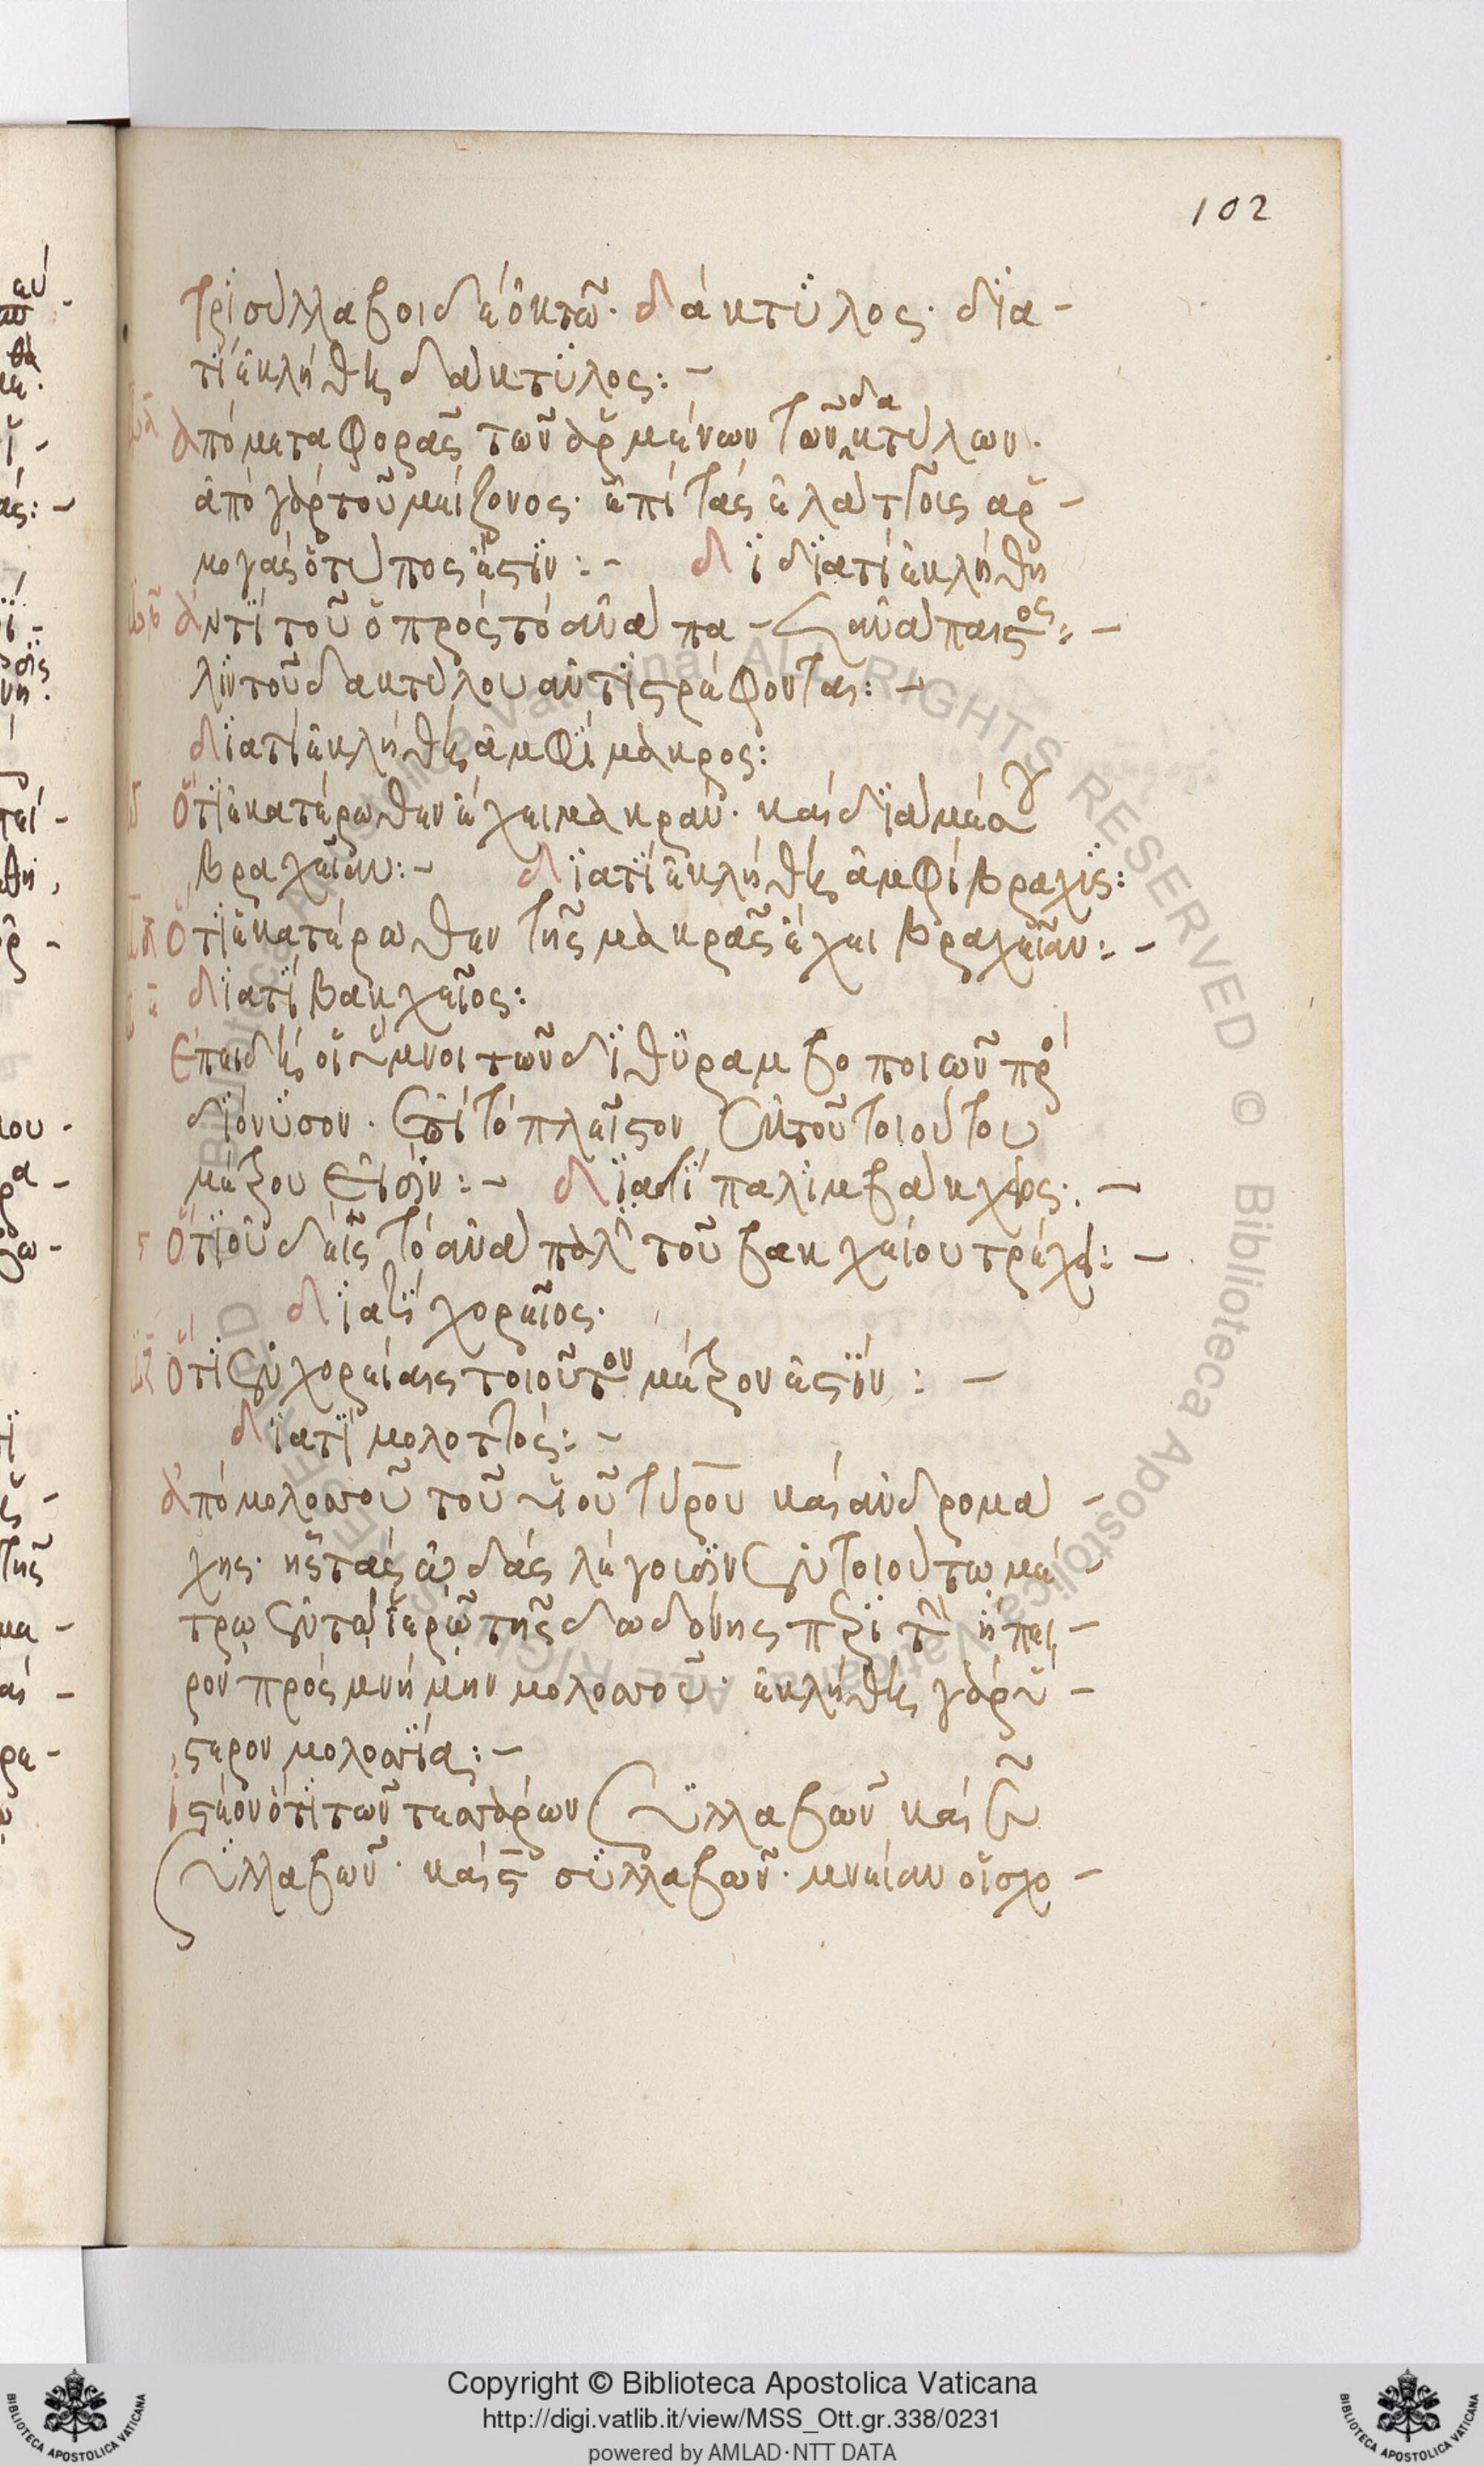 102
Τρϊσύλλαβοι δὲ ὀκτῶ· δάκτϋλος· δϊα -
τΐ ἐκλήθης δάκτϋλος: -
ἀπό μεταφορᾶς τῶν ἀρμένων τῶν δακτύλων·
ἀπό γάρ τοῦ μείζονος· ἐπί τάς ἐλάττοις αρ -
μογάς ὁ τύπος ἐστϊν: - δϊ δϊατί ἐκλήθη
ἀντϊ τοῦ ὁ πρός τό ἀνά πα - ἀνάπαιστος: -
λϊν τοῦ δακτύλου ἀντϊστρέφονται: -
δϊατί ἐκλήθης ἀμφϊμακρος:
Ὅτϊ ἐκατέρωθεν ἔχει μακράν· καί δϊα μέσου
βραχεῖαν: - δϊατϊ ἐκλήθης ἀμφίβραχϊς:
Ὅτϊ ἐκατέρωθεν τῆς μακρᾶς ἔχει βραχεῖαν: -
δϊατϊ βακχεῖος:
Ἐπειδής οἱ ὕμνοι τῶν δϊθϋραμβοποιῶν πρό
δϊόνϋσον· ἐπί τό πλεῖστον ἐκ τοῦ τοιούτου
μέτρου εἰσϊν: - δϊατϊ παλϊμβάκχειος: -
Ὅτϊ οὐδείς τό ἀνάπαλϊ τοῦ βακχείου τρέχει: -
δϊατϊ χορεῖος·
Ὅτϊ ἐν χορείαις τοιοῦτον μέτρον ἐστϊν: -
δϊατϊ μολοττός: -
ἀπό μολοσσοῦ τοῦ υἱοῦ πύρου καί ἀνδρομά -
χης· ἧς τάς ὠδάς λέγουσϊν ἐν τοιούτῳ μέ -
τρῳ ἐν τῷ ἱερῷ τῆς δωδόνης περϊ τήν ἤπει -
ρον πρός μνήμην μολοσσοῦ· ἐκλήθης γάρ ὕ -
στερον μολοσσϊα: -
ἰστέον ὅτϊ τῶν τεσσάρων συλλαβῶν καί ε̃
σϋλλαβῶν· καί ϛ̃ σϋλλαβῶν· μνείαν οἱ σχο -
Copyright © Biblioteca Apostolica Vaticana
http://digi.vatlib.it/view/MSS_Ott.gr.338/0231
powered by AMLAD·NTT DATA